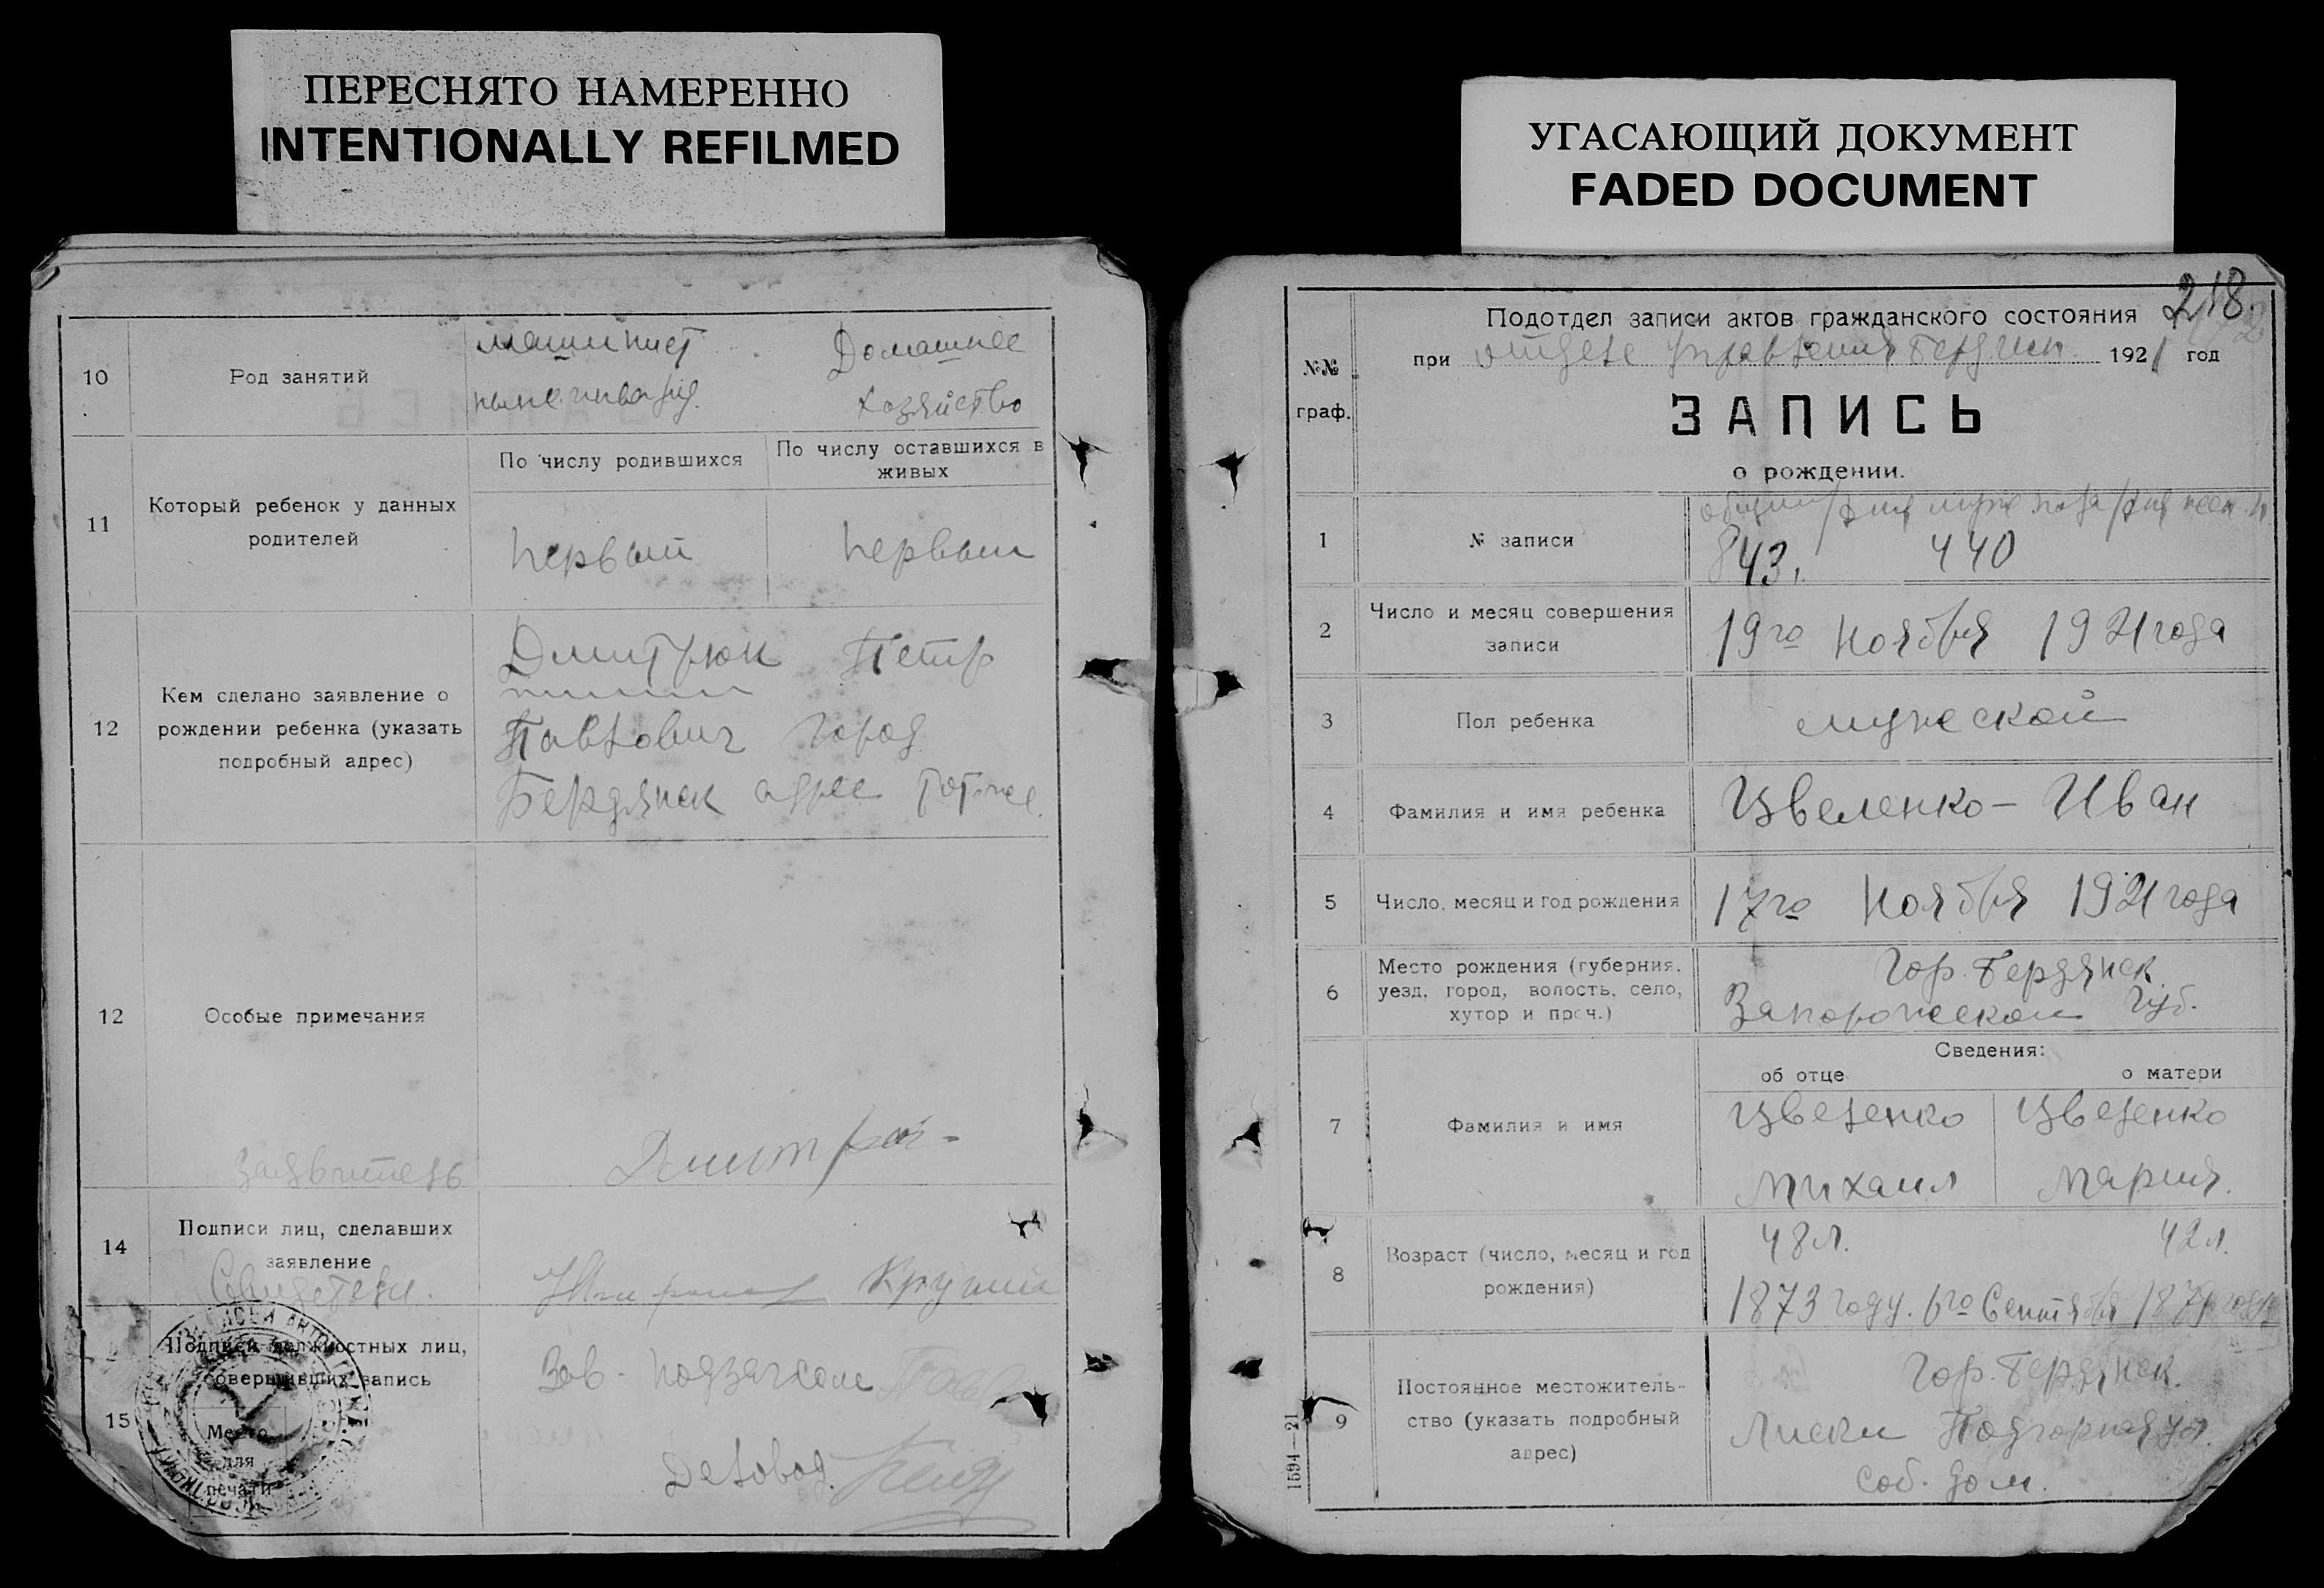 ПЕРЕСНЯТО НАМЕРЕННО
INTENTIONALLY REFILMED
10
Род занятий
машинист
Домашнее
хозяйство
11
Который ребенок у данных
родителей
По числу родившихся
По числу оставшихся в
живых
первый
первый
12
Кем сделано заявление о
рождении ребенка (указать
подробный адрес)
Дмитрюк Петр
Павлович город
Бердянск адрес
12
Особые примечания
Заявитель
14
Подписи лиц, сделавших
заявление
Свидетели.
15
Подписи должностных лиц,
совершивших запись
Место
для
печати
Зав. подзагсом
Деловод.
УГАСАЮЩИЙ ДОКУМЕНТ
FADED DOCUMENT
218
Подотдел записи актов гражданского состояния
при отделе Управления Бердянск. 1921 год
№№
граф.
ЗАПИСЬ
о рождении.
1
№ записи
843.
440
2
Число и месяц совершения
записи
19го Ноября 1921 года
3
Пол ребенка
мужской
4
Фамилия и имя ребенка
Цвеленко - Иван
5
Число, месяц и год рождения
17го Ноября 1921 года
6
Место рождения (губерния,
уезд, город, волость, село,
хутор и проч.)
Гор. Бердянск
Запорожской Губ.
Сведения:
об отце
о матери
7
Фамилия и имя
Цвеленко
Цвеленко
Михаил
Мария.
8
Возраст (число, месяц и год
рождения)
48 л.
42 л.
1873 году. 6го Сентября
9
Постоянное местожитель-
ство (указать подробный
адрес)
Гор. Бердянск.
Лиски Подгорная ул.
Соб. дом.
1594—21